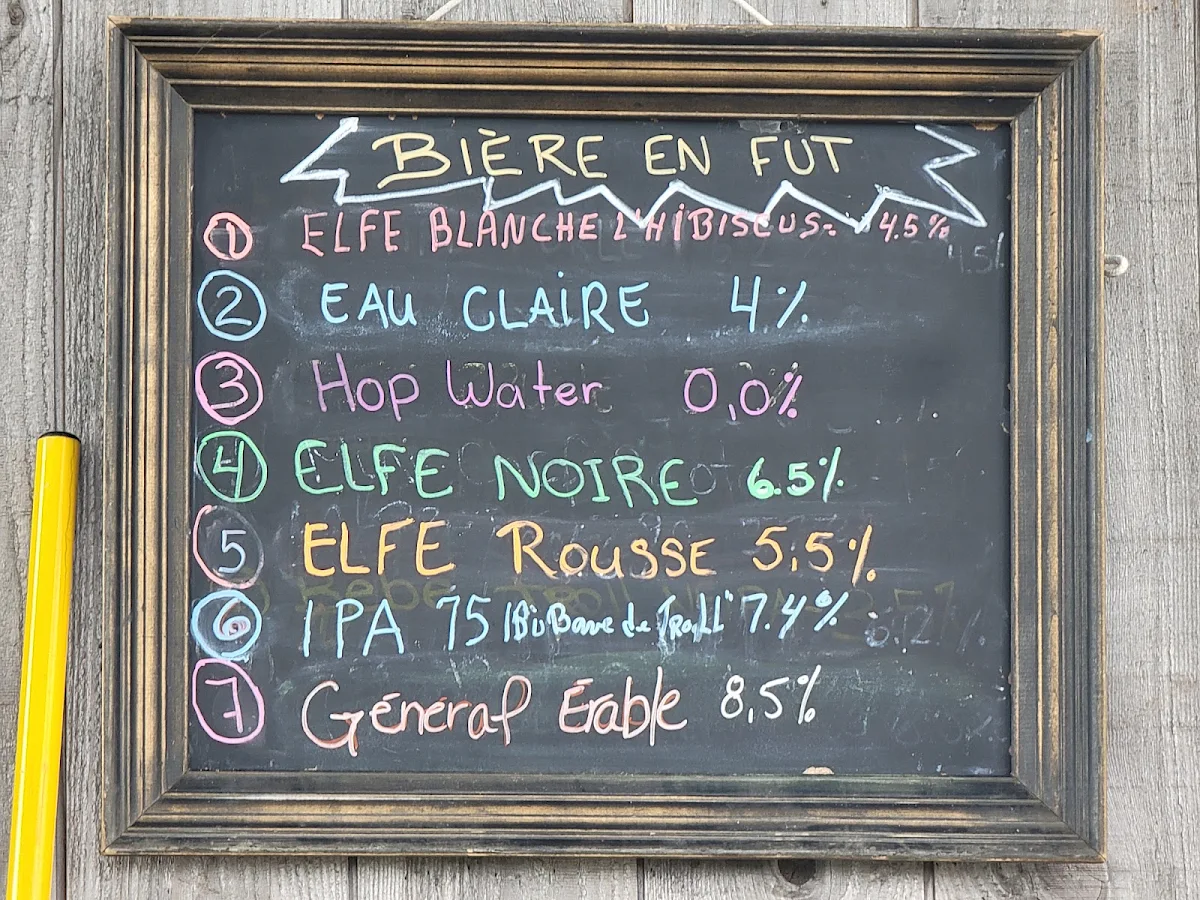 BIÈRE EN FUT
1 ELFE BLANCHE L'HiBiSCUS. 4.5%
2 EAU CLAiRE 4%
3 Hop Water 0,0%
4 ELFE NOIRE 6.5%
5 ELFE ROUSSE 5,5%
6 IPA 75 IBU Bave de Troll" 7.4%
7 Général Érable 8,5%